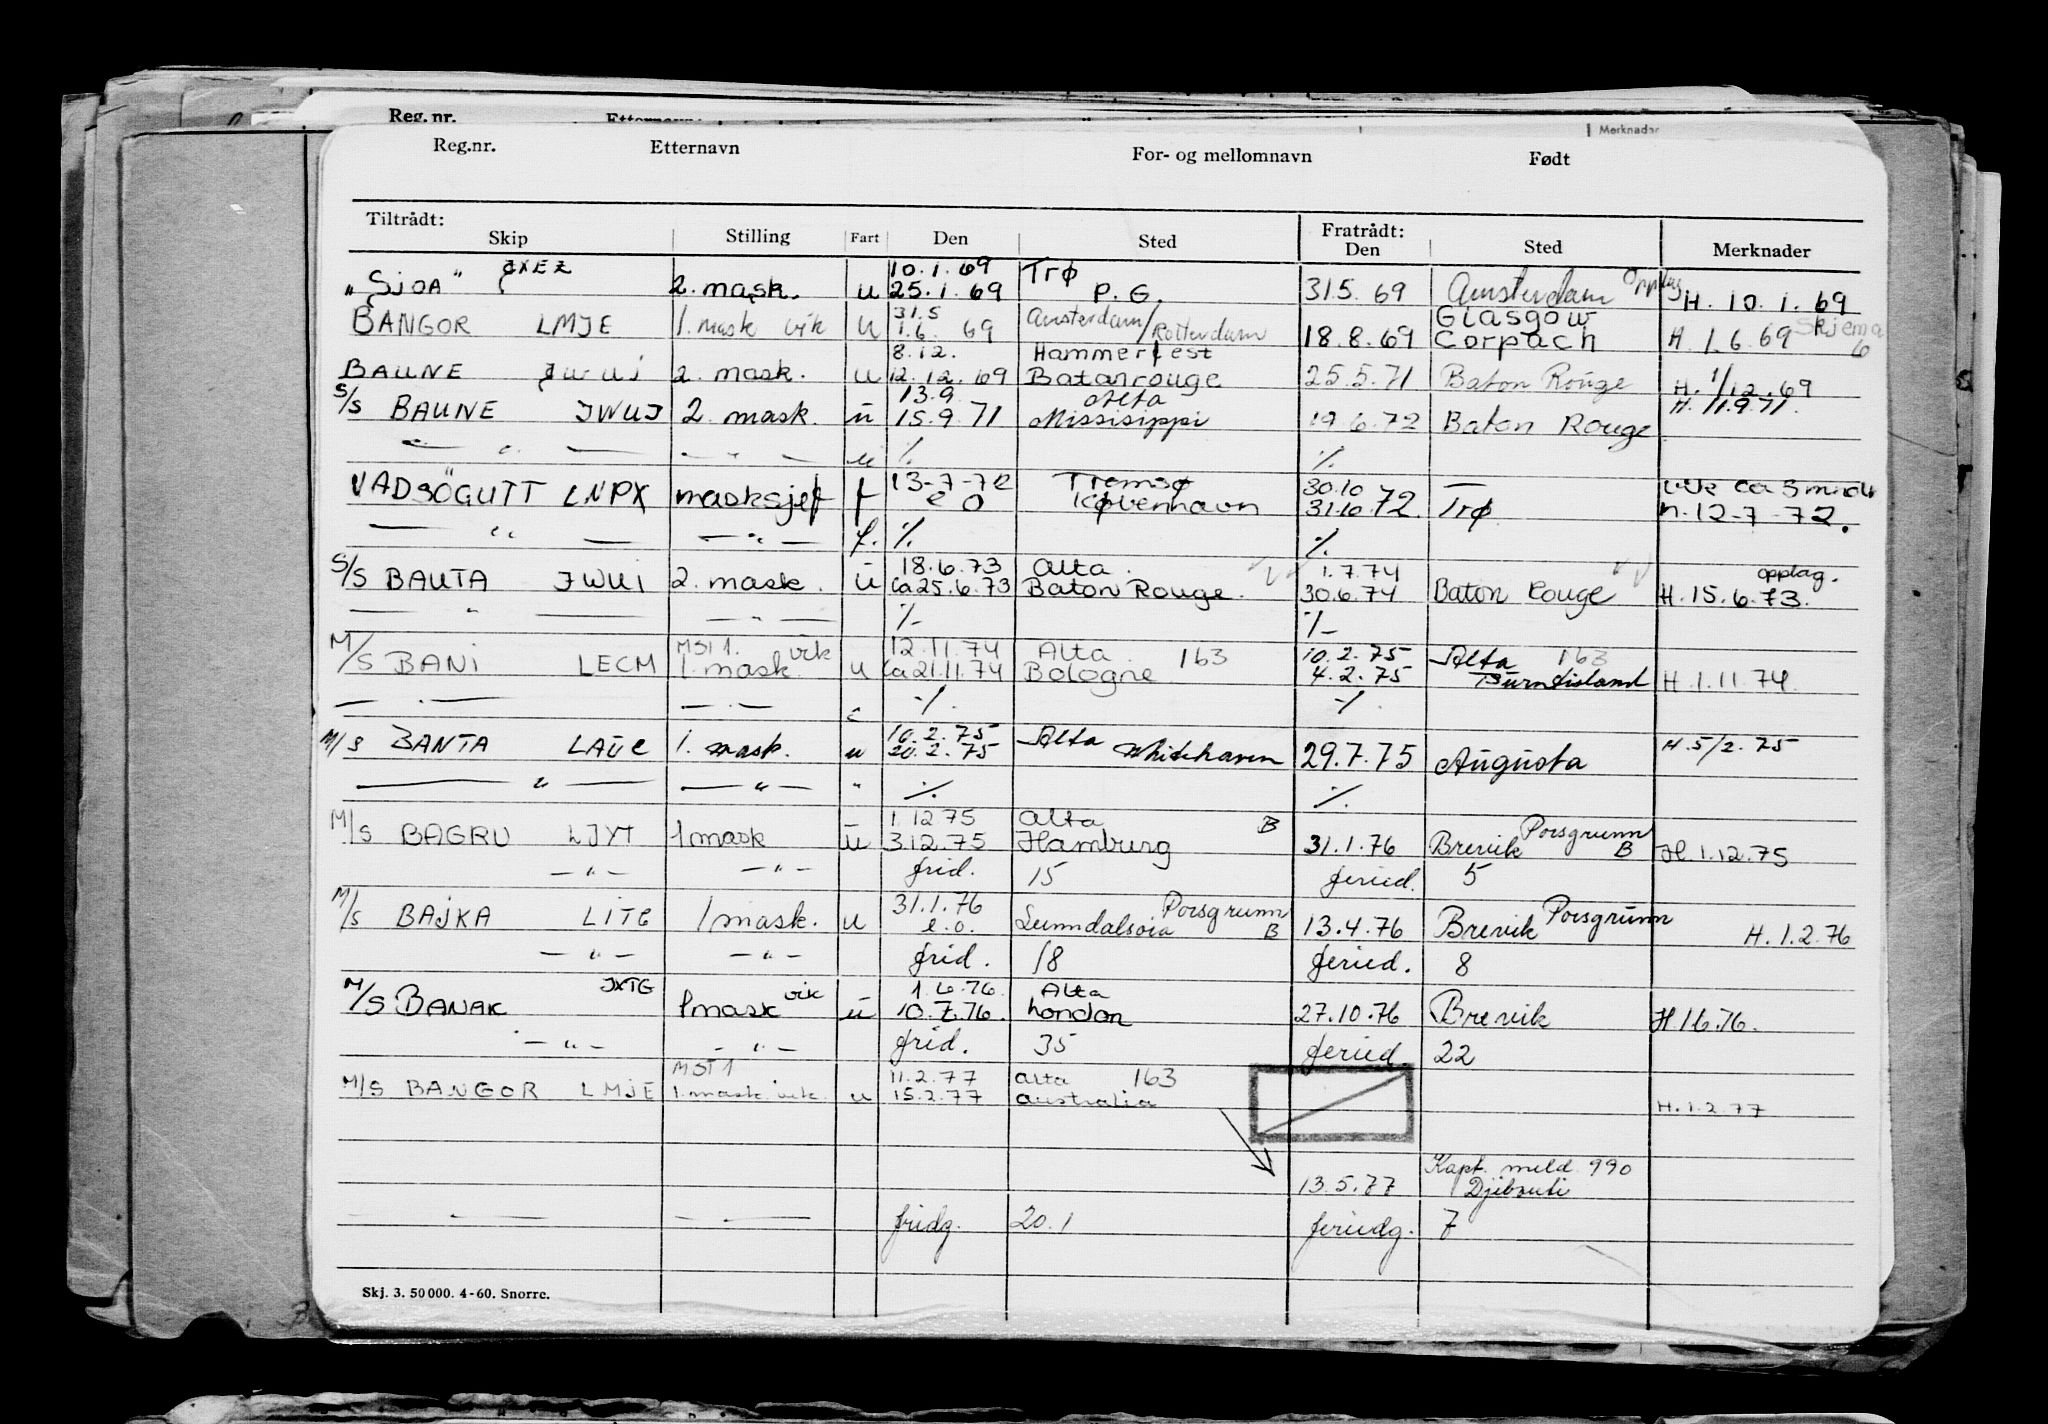 Reg. nr. Etternavn
Merknader
Reg.nr. Etternavn For- og mellomnavn Født
Tiltrådt: Fratrådt:
Skip Stilling Fart Den Sted Den Sted Merknader
JXEZ 10.1.69 Trø
"SJOA" 2. mask. u 25.1.69 P.G. 31.5.69 Amsterdam Opplag H. 10.1.69
31.5 Amsterdam/ Glasgow
BANGOR LMJE 1. mask vik u 1.6.69 Rotterdam 18.8.69 Corpach H. 1.6.69 Skjema 6
8.12. Hammerfest
BAUNE JWUJ 2. mask. u 12.12.69 Batonrouge 25.5.71 Baton Rouge H. 1/12.69
13.9. Alta
S/S BAUNE JWUJ 2. mask. u 15.9.71 Missisippi 19.6.72 Baton Rouge H. 11.9.71.
— " — — " — u ./. ./.
13-7-72 Tromsø 30.10 —
VADSÖGUTT LNPX masksjef f e o København 31.10.72 Trø h. 12-7-72.
— " — — " — f. ./. ./.
18.6.73 Alta. 1.7.74 opplag.
S/S BAUTA JWUI 2. mask. u Ca 25.6.73 Baton Rouge. 30.6.74 Baton Rouge H. 15.6.73.
— " — — " — ./. ./.
MST 1. vik 12.11.74 Alta 163 10.2.75 Alta 163
M/S BANI LECM 1. mask. u Ca 21.11.74 Bologne 4.2.75 Burntisland H. 1.11.74.
— " — — " — ./. ./.
10.2.75 Alta
M/S BANTA LAUC 1. mask. u 20.2.75 Whitehaven 29.7.75 Augusta H. 5/2.75
— " — — " — " ./. ./.
1.12.75 Alta B Porsgrunn
M/S BAGRU LJYT 1 mask u 3.12.75 Hamburg 31.1.76 Brevik B H. 1.12.75
— " — — " — frid. 15 feried. 5
31.1.76 Porsgrunn Porsgrunn
M/S BAJKA LITC 1 mask. u e.o. B 13.4.76 Brevik H. 1.2.76
— " — — " — frid. 18 feried. 8
JXTG vik 1.6.76. Alta
M/S BANAK 1 mask u 10.7.76. London 27.10.76 Brevik H 1.6.76.
— " — — " — frid. 35 feried. 22
MST 1 11.2.77 Alta 163
M/S BANGOR LMJE 1. mask. vik. u 15.2.77 Australia H. 1.2.77
Kapt. meld. 990
13.5.77 Djibouti
— — — — fridg. 20.1 feriedg. 7
Skj. 3. 50 000. 4-60. Snorre.